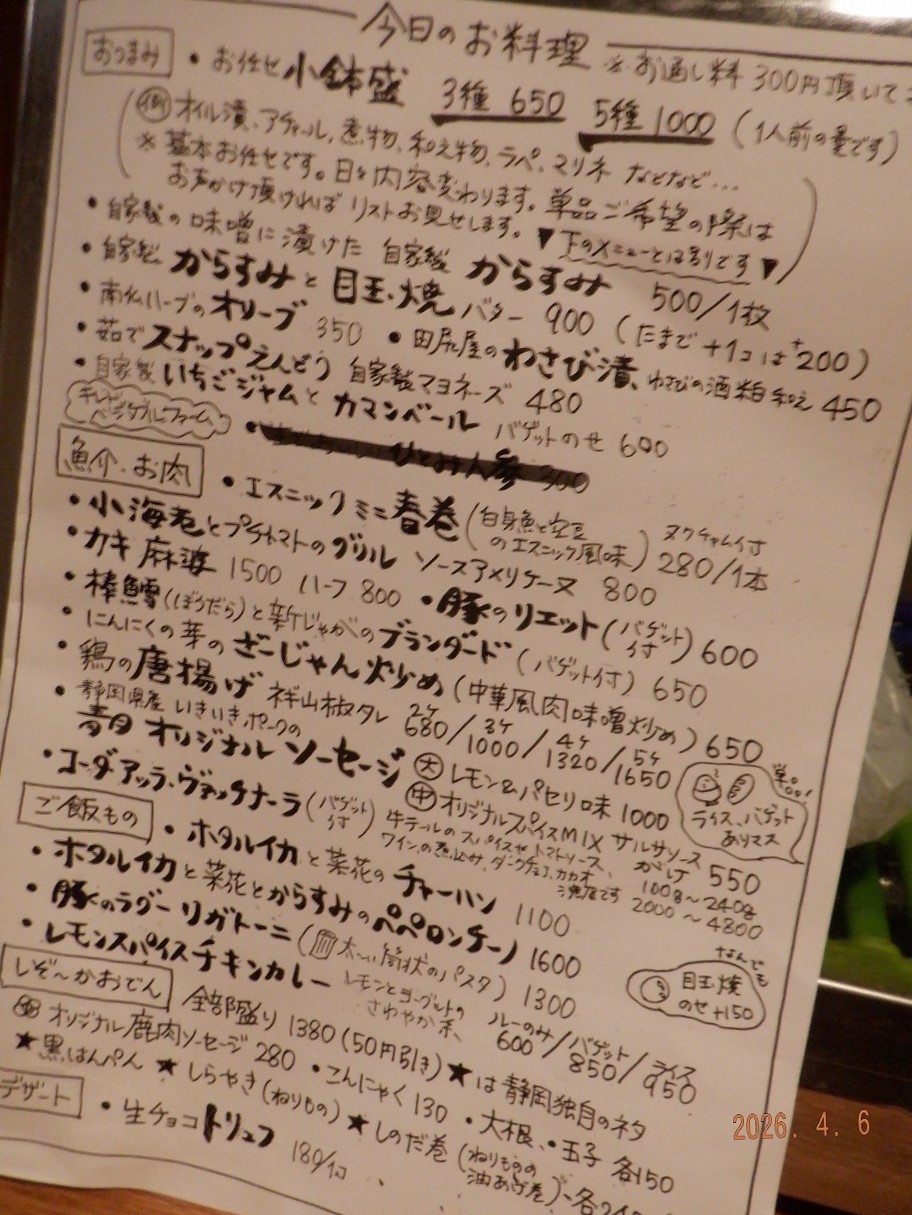 今日のお料理 ※お通し料 300円頂いて
おつまみ
・お任せ 小鉢盛 3種 650 5種 1000 (1人前の量です)
例 オイル漬、アチャール、煮物、和え物、ラペ、マリネ などなど…
※基本お任せです。日々内容変わります。単品ご希望の際は
お声かけ頂ければリストお見せします。 ▼下のメニューとは別りです▼
・自家製の味噌に漬けた 自家製 からすみ 500/1枚
・自家製 からすみと目玉焼 バター 900 (たまご+1コは+200)
・南仏ハーブのオリーブ 350 ・田尻屋のわさび漬、わさびの酒粕和え 450
・茹でスナップえんどう 自家製マヨネーズ 480
・自家製 いちごジャムとカマンベール バゲットのせ 600
ベジタブルファーム
ひとみ人参 300
魚介・お肉
・エスニックミニ春巻 (白身魚と空豆のエスニック風味) ヌクチャム付 280/1本
・小海老とプチトマトのグリル ソースアメリケーヌ 800
・カキ麻婆 1500 ハーフ 800 ・豚のリエット(バゲット付) 600
・棒鱈(ぼうだら)と新じゃがのブランダード (バゲット付) 650
・にんにくの芽のざーじゃん炒め (中華風肉味噌炒め) 650
・鶏の唐揚げ 祥山椒タレ 2ケ680/3ケ1000/4ケ1320/5ケ1650
・静岡県産 いきいきポークの
青日 オリジナル ソーセージ 大 レモン&パセリ味 1000
中 オリジナルスパイスMIX サルサソースがけ 550
ライス、バゲットあります
・コーダ・アッラ・ヴァッチナーラ (バゲット付) 牛テールのスパイスセトマトソース、
ワインの煮込み、ダークチョコ、カカオ 100g〜240g
2000〜4800
ご飯もの
・ホタルイカと菜花のチャーハン 1100
・ホタルイカと菜花とからすみのペペロンチーノ 1600
なんでも 目玉焼のせ+150
・豚のラグー リガトーニ (太い筒状のパスタ) 1300
・レモンスパイスチキンカレー レモンとヨーグルトのさわやか系、 ルーのみ600/バゲット850/ライス950
しぞ〜かおでん
全部盛り 1380(50円引き) ★は静岡独自のネタ
オリジナル鹿肉ソーセージ 280 ・こんにゃく 130 ・大根、・玉子 各150
★黒はんぺん ★しらやき(ねりもの) ★しのだ巻 (ねりものの油あげ巻)
デザート
・生チョコトリュフ 180/1コ
2026. 4. 6